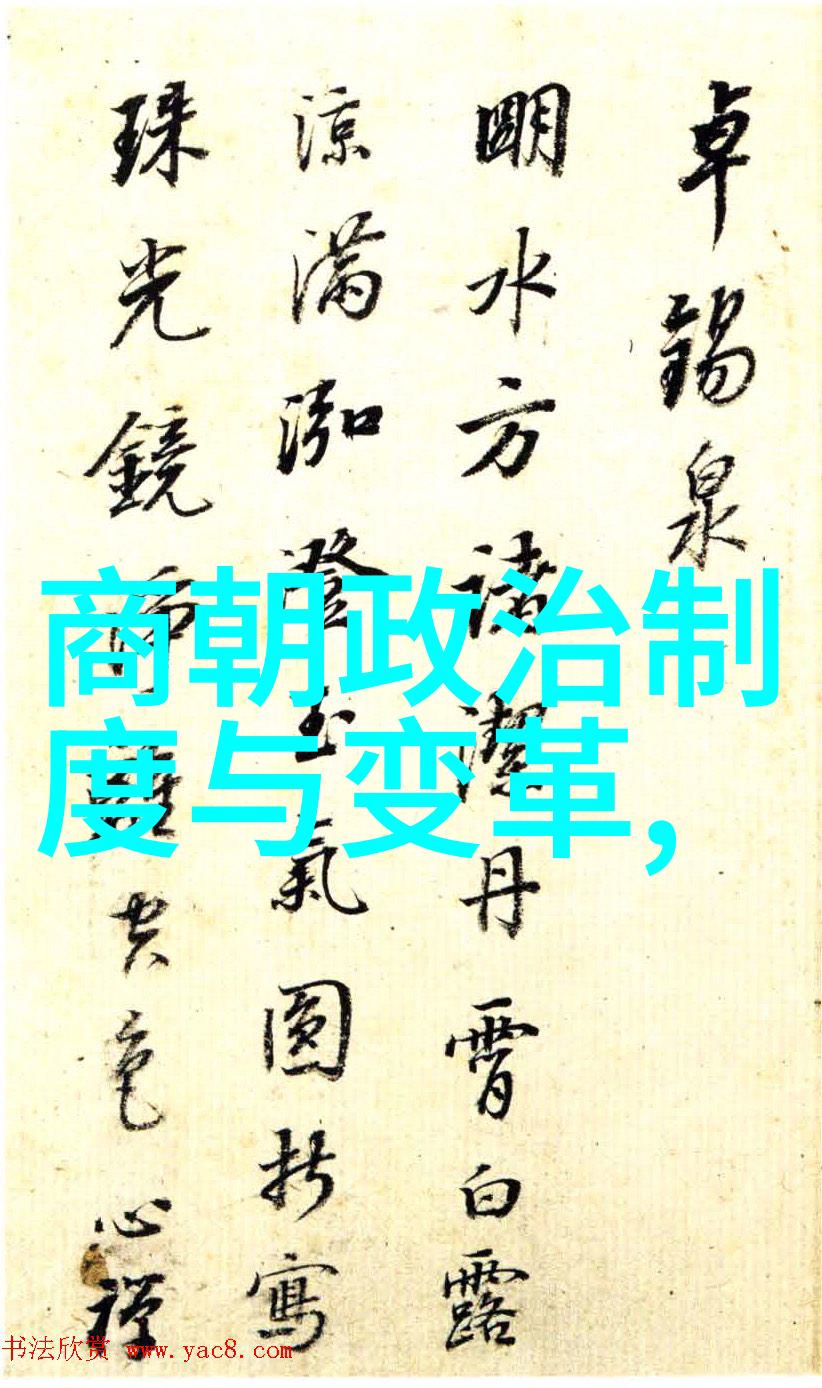 卓錫泉
明水方諸潔丹霄白露
涼滿泓澄玉氣圓折寫
珠光鏡而難共色心禪
商朝政治制
度与变革,
书法欣赏 www.yac8.com